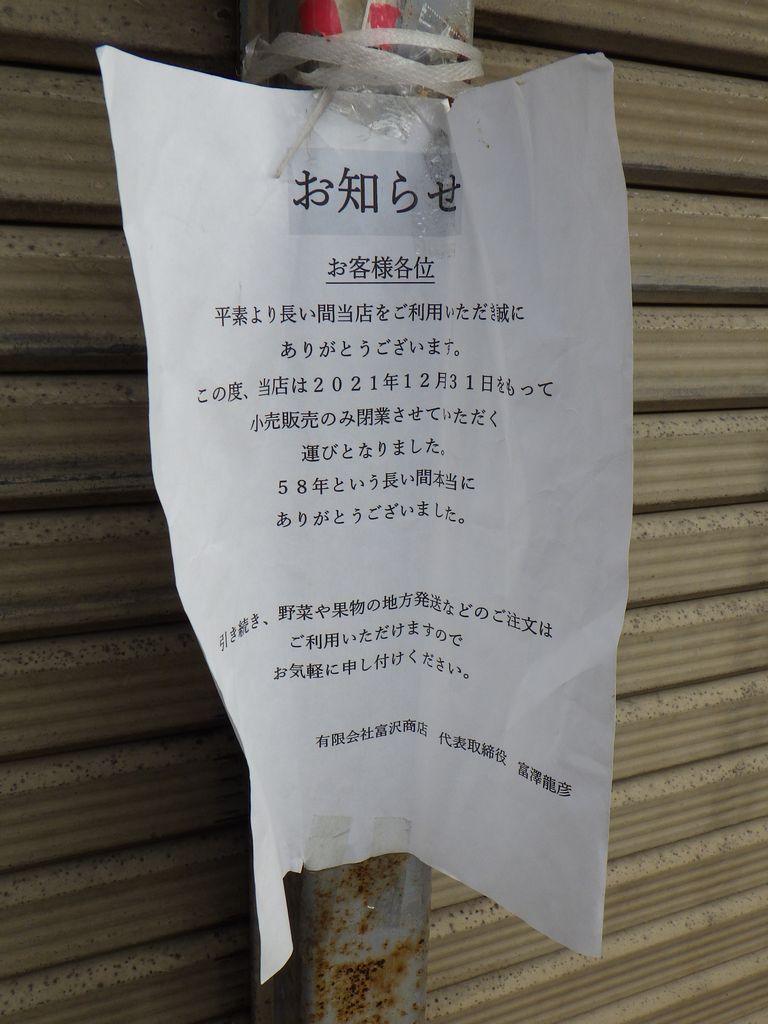 お知らせ
お客様各位
平素より長い間当店をご利用いただき誠に
ありがとうございます。
この度、当店は２０２１年１２月３１日をもって
小売販売のみ閉業させていただく
運びとなりました。
５８年という長い間本当に
ありがとうございました。
引き続き、野菜や果物の地方発送などのご注文は
ご利用いただけますので
お気軽に申し付けください。
有限会社富沢商店　代表取締役　富澤龍彦